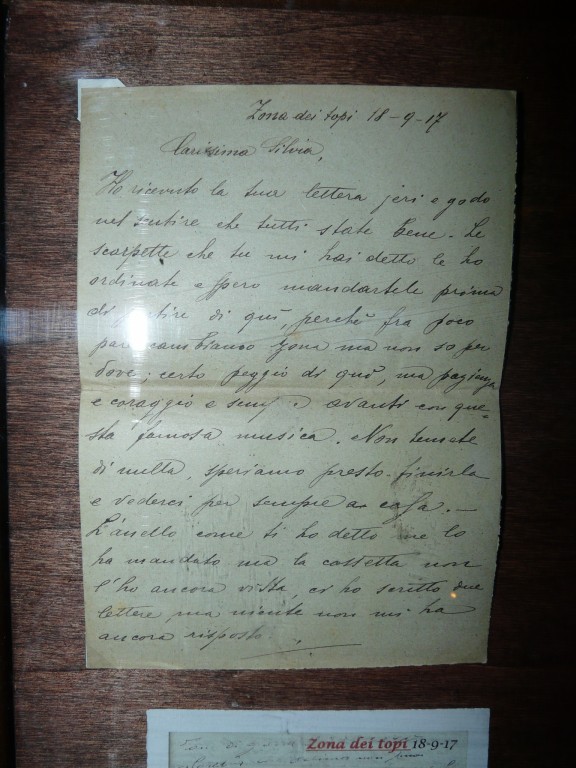 Zona dei topi 18-9-17
Carissima Silvia,
Ho ricevuto la tua lettera jeri e godo
nel sentire che tutti state bene. Le
scarpette che tu mi hai detto le ho
ordinate e spero mandartele prima
di partire di quì, perchè fra poco
pare cambiamo zona ma non so per
dove; certo peggio di quì, ma pazienza
e coraggio e sempre avanti con que-
sta famosa musica. Non temete
di nulla, speriamo presto finirla
e vederci per sempre a casa.—
L'anello come ti ho detto me lo
ha mandato ma la cassetta non
l'ho ancora vista, ci ho scritto due
lettere ma niente non mi ha
ancora risposto
Zona dei topi 18-9-17